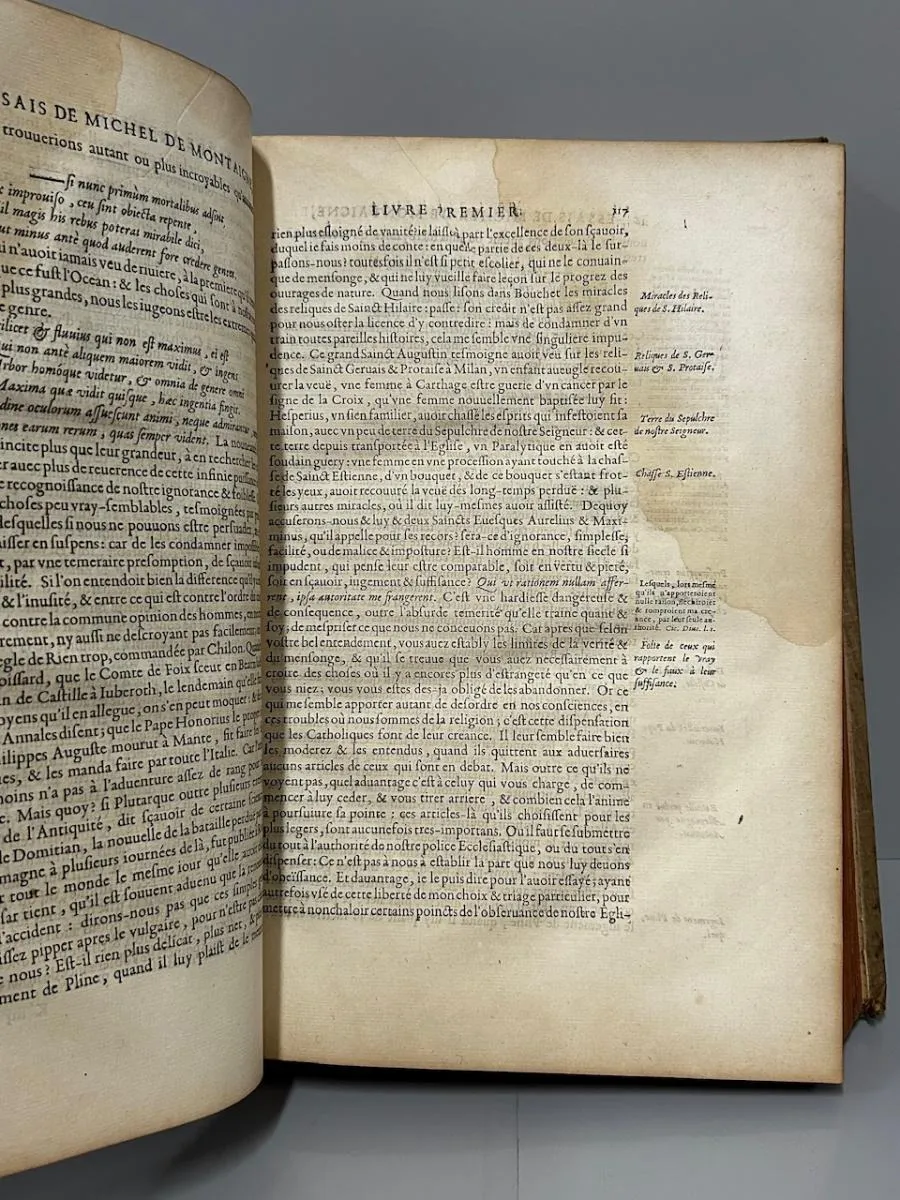 SSAIS DE MICHEL DE MONTAIGN
trouuerions autant ou plus incroyables qu'aucunes
si nunc primùm mortalibus adsint
improuiso, ceu sint obiecta repente,
il magis his rebus poterat mirabile dici,
ut minus antè quod auderent fore credere gentes.
i n'auoit iamais veu de riuiere, à la premiere qu'il
que ce fust l'Ocean: & les choses qui sont à nostre
plus grandes, nous les iugeons estre les extremes
e genre.
ilicet & fluuius qui non est maximus, ei est
ui non antè aliquem maiorem vidit, & ingens
rbor homóque videtur, & omnia de genere omni
Maxima quæ vidit quisque, hæc ingentia fingit.
dine oculorum assuescunt animi, neque admirantur,
ones earum rerum, quas semper vident. La nouueauté
incite plus que leur grandeur, à en rechercher
er auec plus de reuerence de cette infinie puissance
e recognoissance de nostre ignorance & foiblesse
choses peu vray-semblables, tesmoignées par
desquelles si nous ne pouuons estre persuadez,
aisser en suspens: car de les condamner impossibles
, par vne temeraire presomption, de sçauoir
ilité. Si l'on entendoit bien la difference qu'il y
& l'inusité, & entre ce qui est contre l'ordre du
contre la commune opinion des hommes, en ne
rement, ny aussi ne descroyant pas facilement,
egle de Rien trop, commandée par Chilon. Quand
oissard, que le Comte de Foix sceut en Bearn
an de Castille à Iuberoth, le lendemain qu'elle
oyens qu'il en allegue, on s'en peut moquer: &
Annales disent, que le Pape Honorius le propre
hilippes Auguste mourut à Mante, fit faire
ues, & les manda faire par toute l'Italie. Car
moins n'a pas à l'aduenture assez de rang pour
e. Mais quoy? si Plutarque outre plusieurs
de l'Antiquité, dit sçauoir de certaine
e Domitian, la nouuelle de la bataille perduë
magne à plusieurs iournées de là, fut publiée à
r tout le monde le mesme iour qu'elle auoit
sar tient, qu'il est souuent aduenu que la
l'accident: dirons-nous pas que ces simples
issez pipper apres le vulgaire, pour n'estre pas
nous? Est-il rien plus delicat, plus net, &
ment de Pline, quand il luy plaist de le
LIVRE PREMIER. 317
rien plus esloigné de vanité: ie laisse à part l'excellence de son sçauoir,
duquel ie fais moins de conte: en quelle partie de ces deux-là le sur-
passons-nous? toutesfois il n'est si petit escolier, qui ne le conuain-
que de mensonge, & qui ne luy vueille faire leçon sur le progrez des
ouurages de nature. Quand nous lisons dans Bouchet les miracles
des reliques de Sainct Hilaire: passe: son credit n'est pas assez grand
pour nous oster la licence d'y contredire: mais de condamner d'vn
train toutes pareilles histoires, cela me semble vne singuliere impu-
dence. Ce grand Sainct Augustin tesmoigne auoit veu sur les reli-
ques de Sainct Geruais & Protaise à Milan, vn enfant aueugle recou-
urer la veuë, vne femme à Carthage estre guerie d'vn cancer par le
signe de la Croix, qu'vne femme nouuellement baptisée luy fit:
Hesperius, vn sien familier, auoir chassé les esprits qui infestoient sa
maison, auec vn peu de terre du Sepulchre de nostre Seigneur: & cet-
te terre depuis transportée à l'Eglise, vn Paralytique en auoit esté
soudain guery: vne femme en vne procession ayant touché à la chas-
se de Sainct Estienne, d'vn bouquet, & de ce bouquet s'estant frot-
té les yeux, auoit recouuré la veuë dés long-temps perduë: & plu-
sieurs autres miracles, où il dit luy-mesmes auoir assisté. Dequoy
accuserons-nous & luy & deux Saincts Euesques Aurelius & Maxi-
minus, qu'il appelle pour ses recors? sera-ce d'ignorance, simplesse,
facilité, ou de malice & imposture? Est-il homme en nostre siecle si
impudent, qui pense leur estre comparable, soit en vertu & pieté,
soit en sçauoir, iugement & suffisance? Qui vt rationem nullam affer-
rent, ipsa autoritate me frangerent. C'est vne hardiesse dangereuse &
de consequence, outre l'absurde temerité qu'elle traine quant &
soy, de mespriser ce que nous ne conceuons pas. Car apres que selon
vostre bel entendement, vous auez estably les limites de la verité &
du mensonge, & qu'il se treuue que vous auez necessairement à
croire des choses où il y a encores plus d'estrangeté qu'en ce que
vous niez; vous vous estes des-ja obligé de les abandonner. Or ce
qui me semble apporter autant de desordre en nos consciences, en
ces troubles où nous sommes de la religion; c'est cette dispensation
que les Catholiques font de leur creance. Il leur semble faire bien
les moderez & les entendus, quand ils quittent aux aduersaires
aucuns articles de ceux qui sont en debat. Mais outre ce qu'ils ne
voyent pas, quel aduantage c'est à celuy qui vous charge, de com-
mencer à luy ceder, & vous tirer arriere, & combien cela l'anime
à poursuiure sa pointe: ces articles-là qu'ils choisissent pour les
plus legers, sont aucunefois tres-importans. Ou il faut se submettre
du tout à l'authorité de nostre police Ecclesiastique, ou du tout s'en
dispenser: Ce n'est pas à nous à establir la part que nous luy deuons
d'obeïssance. Et dauantage, ie le puis dire pour l'auoir essayé; ayant
autrefois vsé de cette liberté de mon choix & triage particulier, pour
mettre à nonchaloir certains poincts de l'obseruance de nostre Egli-
Miracles des Reli-
ques de S. Hilaire.
Reliques de S. Ger-
uais & S. Protaise.
Terre du Sepulchre
de nostre Seigneur.
Chasse S. Estienne.
Lesquels, lors mesme
qu'ils n'apporteroient
nulle raison, flechiroiēt
& romproient ma cre-
ance, par leur seule au-
thorité. Cic. Diuin. l. 1.
Folie de ceux qui
rapportent le vray
& le faux à leur
suffisance.